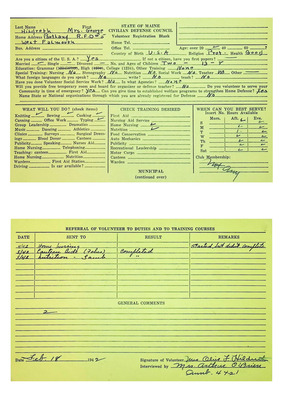 Last Name First
Hildreth Mrs. George
Home Address Portland R.F.D #5
West Falmouth
Bus. Address
STATE OF MAINE
CIVILIAN DEFENSE COUNCIL
Volunteer Registration Blank
Home Tel.
Office Tel. Age: over 20 or 40 60 ?
Country of Birth U-S-A Religion Prot. Health Good
Are you a citizen of the U. S. A.? yes If not a citizen, have you first papers?
Married Single Divorced No. and Ages of Children Two
Education: Grammar High College (1234), Office Training None
Special Training: Nursing No Stenography No Nutrition No Social Work No Teacher No Other
What foreign languages do you speak? No write? No teach?
Have you done Volunteer Service Work? No In what Agencies?
Will you provide free temporary room and board for expectant or helpless mother? No Do you volunteer to serve your
Community in time of emergency? yes Can you give time to established welfare programs to strengthen Home Defense? yes
Name State or National organizations through which you are already registered for Defense No
WHAT WILL YOU DO? (check items)
Knitting Sewing Cooking
Canning Office Work Typing
Group Leadership Dramatics
Music Dancing Athletics
Clinics Surveys Surgical Dress-
ings Blood Donor Canteen
Publicity Speaking Nurses Aid
Home Nursing Telephoning
Teaching: canteen First Aid
Home Nursing Nutrition
Wardens First Aid Station
Driving Is car available?
CHECK TRAINING DESIRED
First Aid
Nursing Aid Service
Home Nursing
Nutrition
Food Conservation
Auto Mechanics
Publicity
Recreational Leadership
Motor Corps
Canteen
Warden
MUNICIPAL
(continued over)
WHEN CAN YOU BEST SERVE?
Insert No. Hours Available
Morn. Aft. Eve.
M
T
W
Th
F
Sat
Club Membership:
REFERRAL OF VOLUNTEER TO DUTIES AND TO TRAINING COURSES
DATE SENT TO RESULT REMARKS
Home Nursing Started but didn't complete
Canteen Completed
Nutrition "
GENERAL COMMENTS
2
Date Feb 18 1942 Signature of Volunteer Mrs Olive F. Hildreth
Interviewed by Mrs. Arthur O'Brien